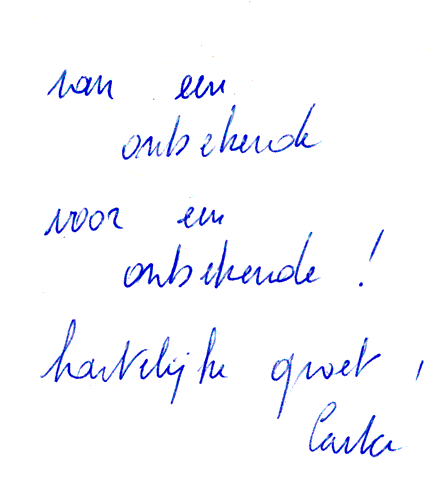 van een
onbekende
voor een
onbekende !
hartelijke groet,
Carla